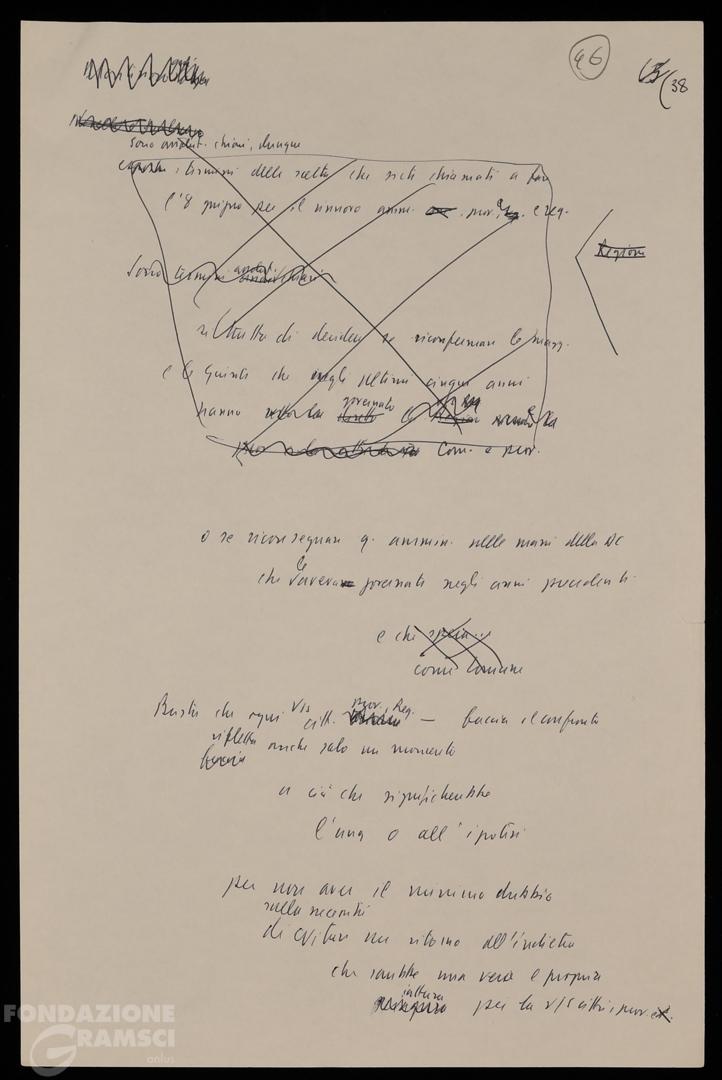 46
38
sono chiari, dunque
i termini della scelta che siete chiamati a fare
l'8 giugno per il rinnovo amm. prov. e reg.
Sono i termini chiari
si tratta di decidere se riconfermare le magg.
e le Giunte che negli ultimi cinque anni
hanno governato
Com. e prov.
o se riconsegnare q. ammin. nelle mani della DC
che le aveva governate negli anni precedenti
e che
come Comune
Basta che ogni vs citt. prov., Reg. — faccia il confronto
rifletta anche solo un momento
a ciò che significherebbe
l'una o all'ipotesi
per non aver il minimo dubbio
sulla necessità
di evitare un ritorno all'indietro
che sarebbe una vera e propria
iattura per la vs città, prov.
FONDAZIONE
GRAMSCI
onlus